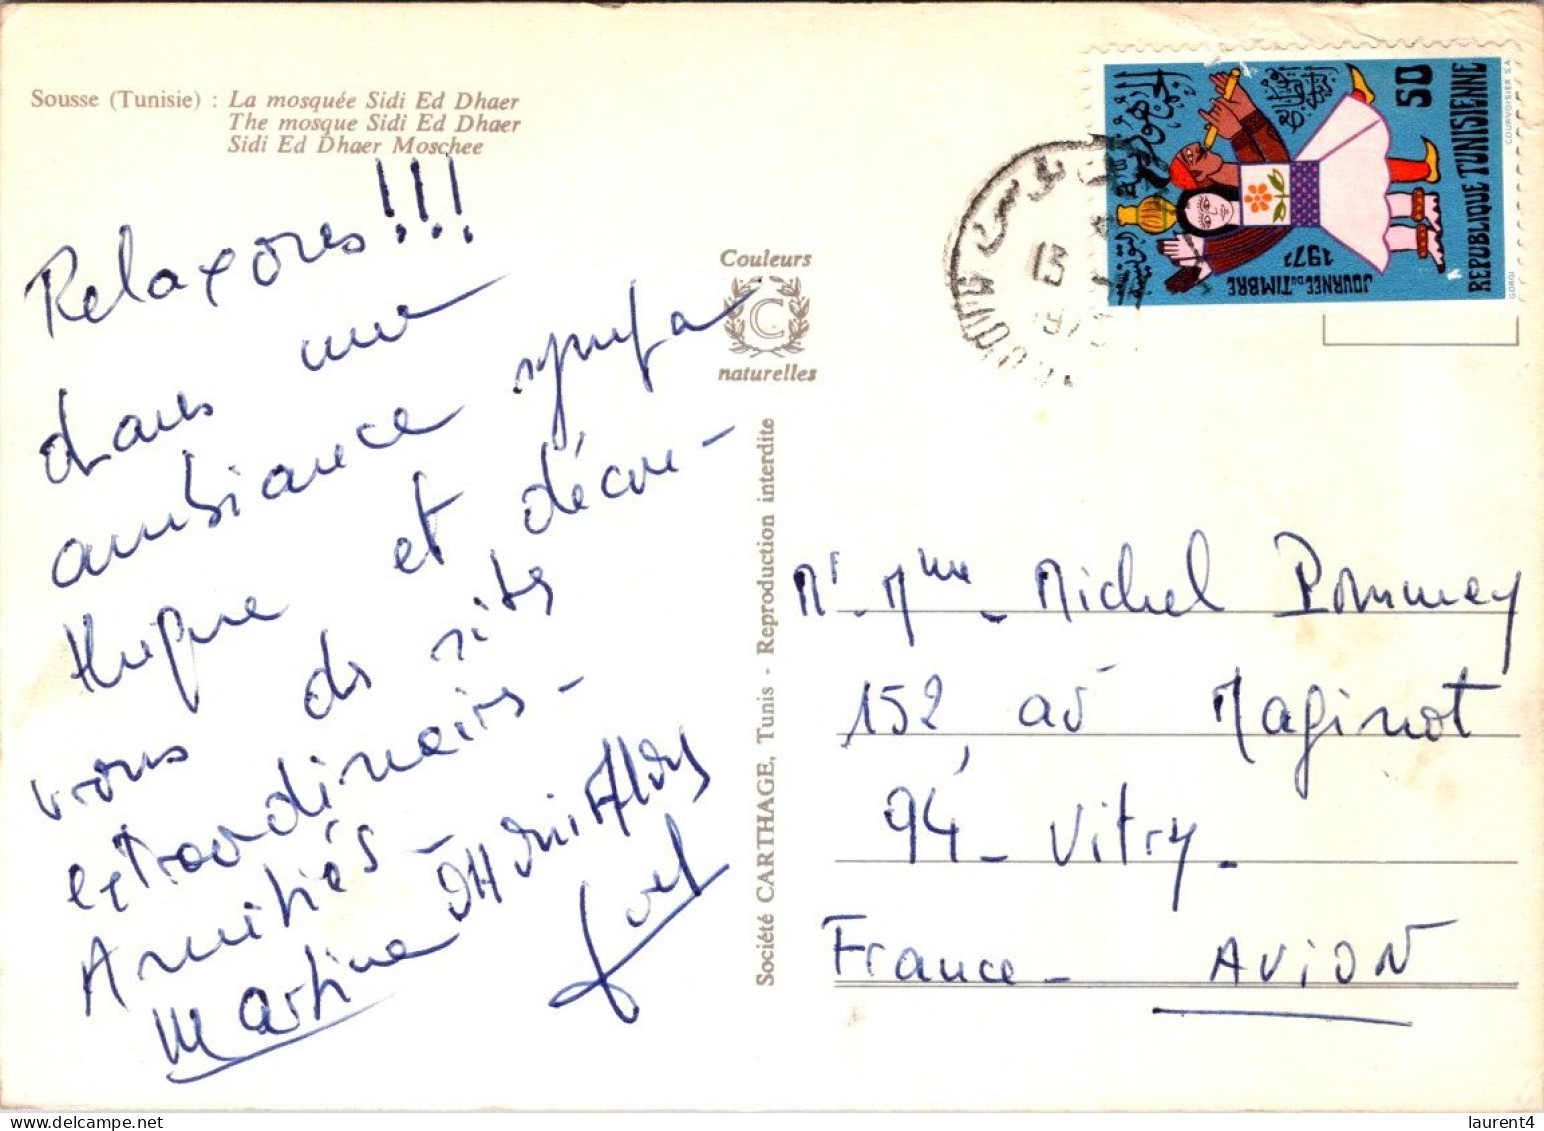 Sousse (Tunisie) : La mosquée Sidi Ed Dhaer
The mosque Sidi Ed Dhaer
Sidi Ed Dhaer Moschee
Relaxores!!!
dans une
ambiance sympa
thique et décou-
vrons des sites
extraordinaires -
Amitiés -
Martine
Couleurs
naturelles
C
Société CARTHAGE, Tunis - Reproduction interdite
REPUBLIQUE TUNISIENNE
50
JOURNEE DU TIMBRE
1973
COURVOISIER S.A.
GORGI
13
Mr - Mme - Michel Pommey
152, av Maginot
94 - Vitry -
France - AVION
laurent4